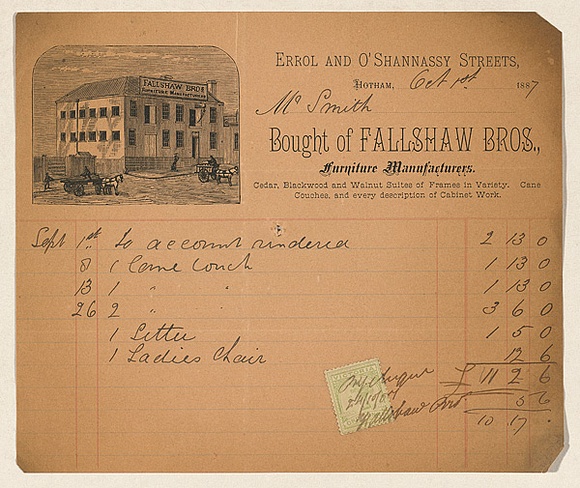 FALLSHAW BROS
FURNITURE MANUFACTURERS
ERROL AND O'SHANNASSY STREETS,
HOTHAM, Oct 1st 1887
Mr Smith
Bought of FALLSHAW BROS.,
Furniture Manufacturers.
Cedar, Blackwood and Walnut Suites of Frames in Variety. Cane
Couches, and every description of Cabinet Work.
Sept 1st To account rendered 2 13 0
8 1 Cane Couch 1 13 0
13 1 " " 1 13 0
26 2 " " 3 6 0
1 Settee 1 5 0
1 Ladies Chair 12 6
£ 11 2 6
5 6
10 17 "
Fallshaw Bros